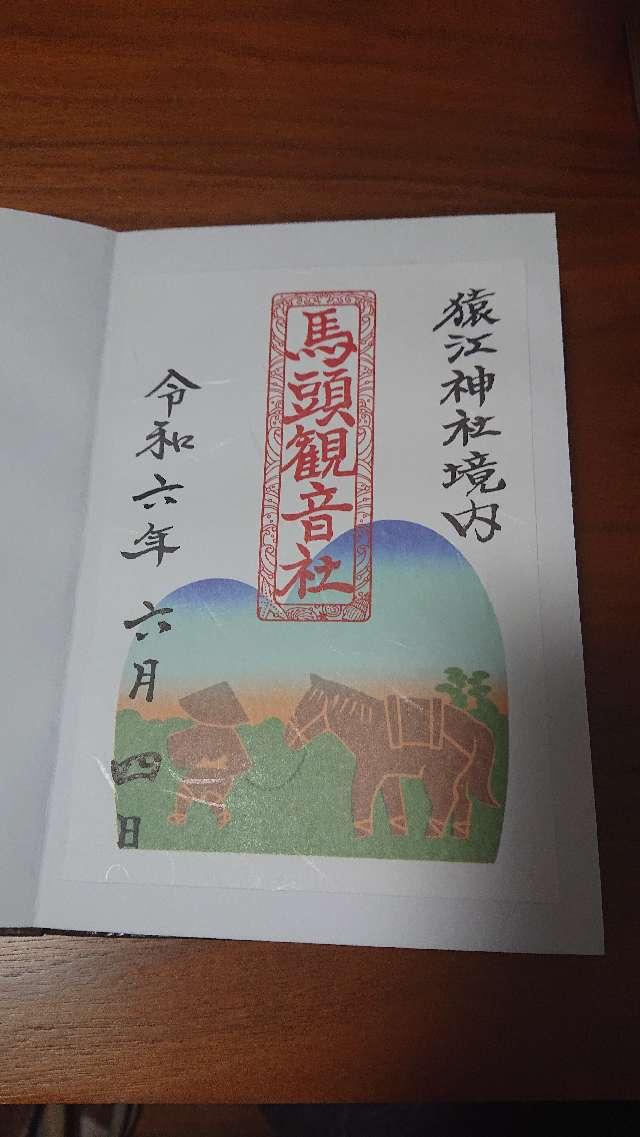 猿江神社境内
馬頭観音社
令和六年六月四日